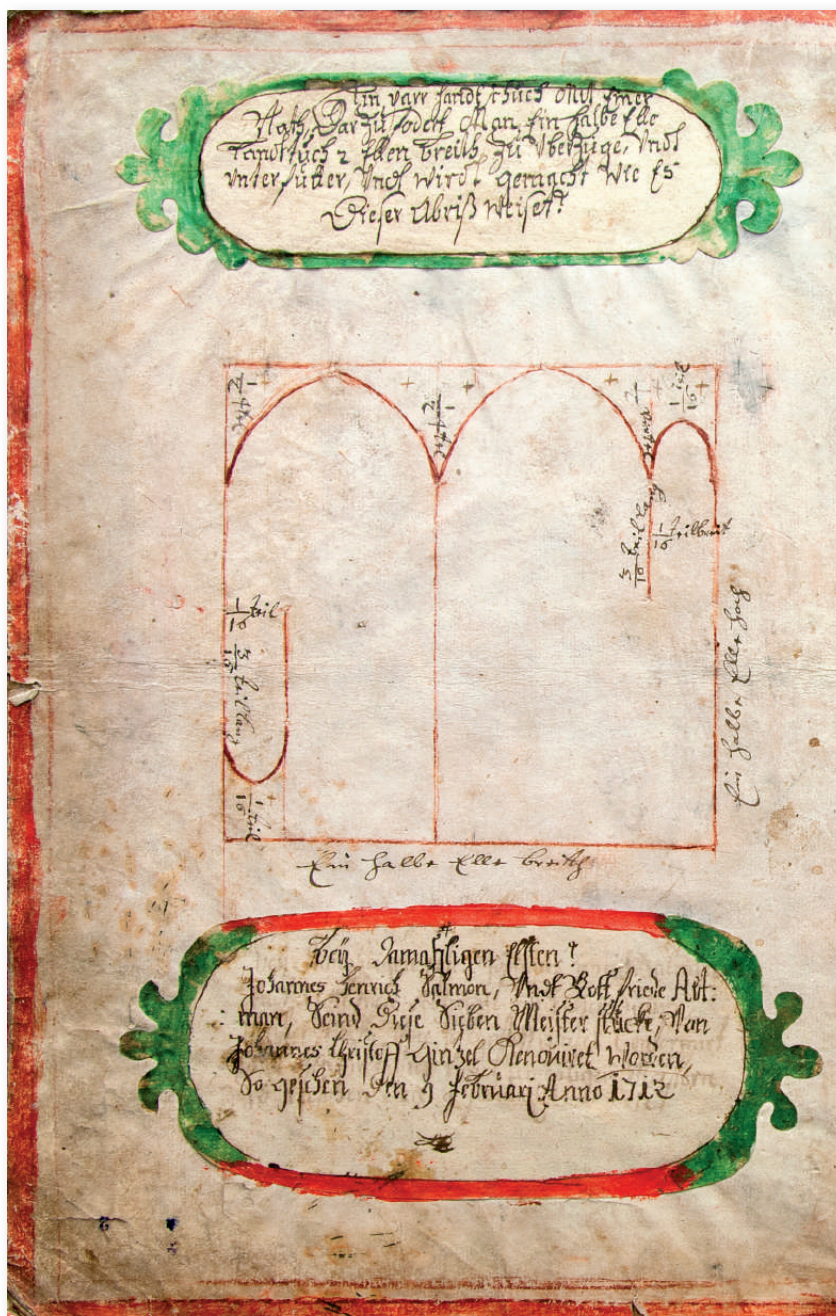 Ein par handtschuch Mit einer
Nath, Dar zu fodert Man Ein halbe Elle
2 Ellen breith, Zu Uberzuge, Undt
Unterfutter, Undt Wirdt gemacht Wie Es
Dieser Abriß Weiset.
1/16 teil
3/16 teil lang
1/16 teil breit
1/16 teil
3/16 teil lang
1/16 teil
Ein halbe Elle hoch
Ein halbe Elle breith
beÿ Damahligen Elsten
Johannes Henrich Salmon, Undt Gottfriede Abt:
man, Seind Diese Sieben Meister stücke, Von
Johannes Christoff Renoviret Worden,
So geschen Den 9 Februarj Anno 1712